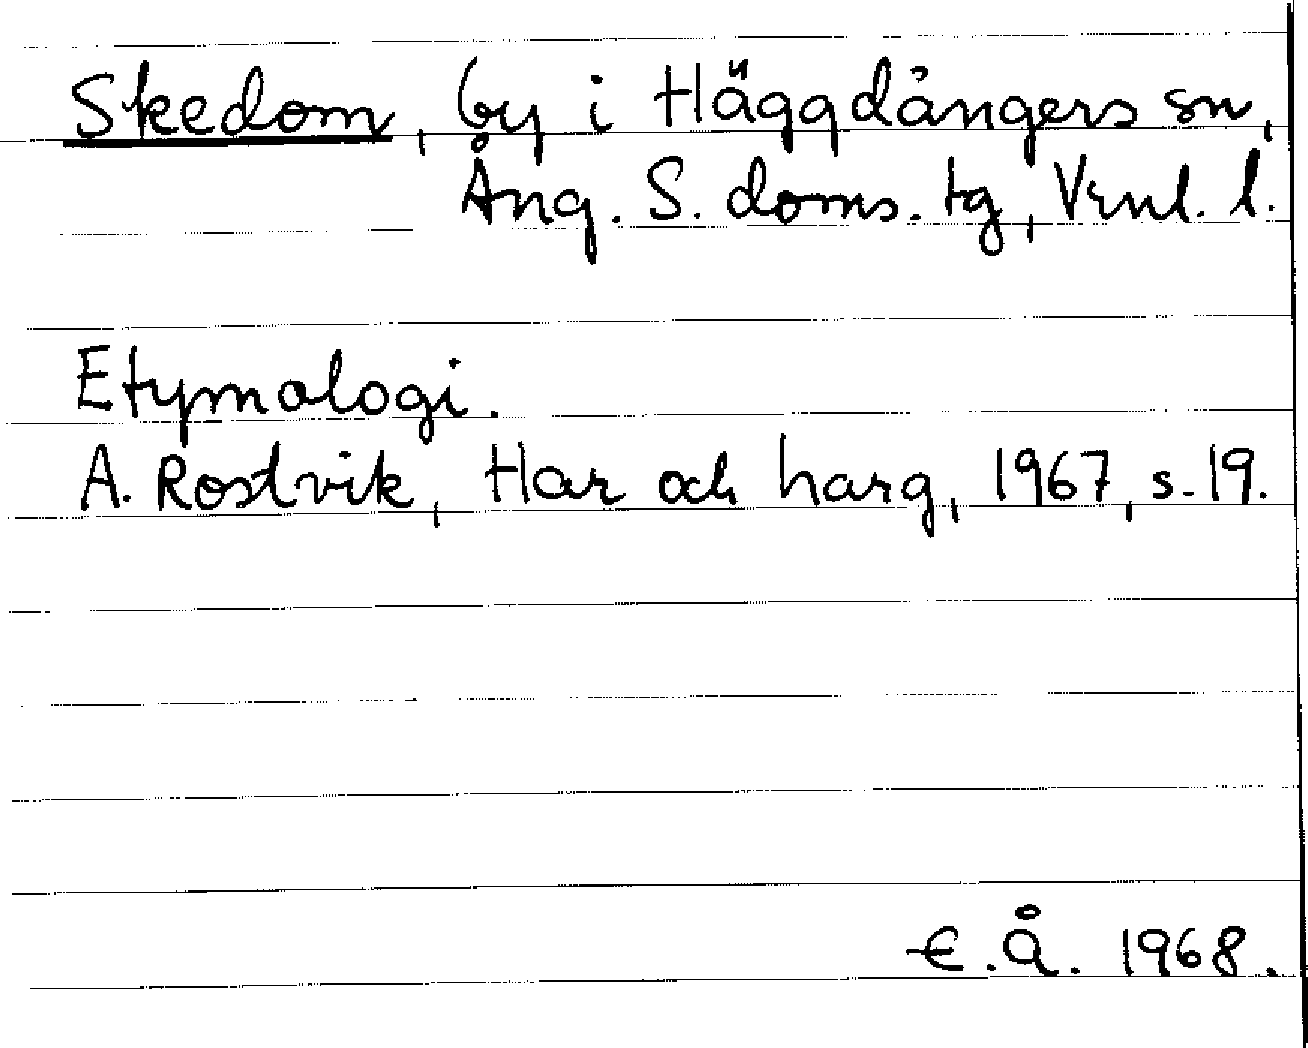 Skedom, by i Häggdångers sn,
Ång. S. doms. tg, Vrnl. l.
Etymologi.
A. Rostvik, Har och harg, 1967, s. 19.
E. Å. 1968.